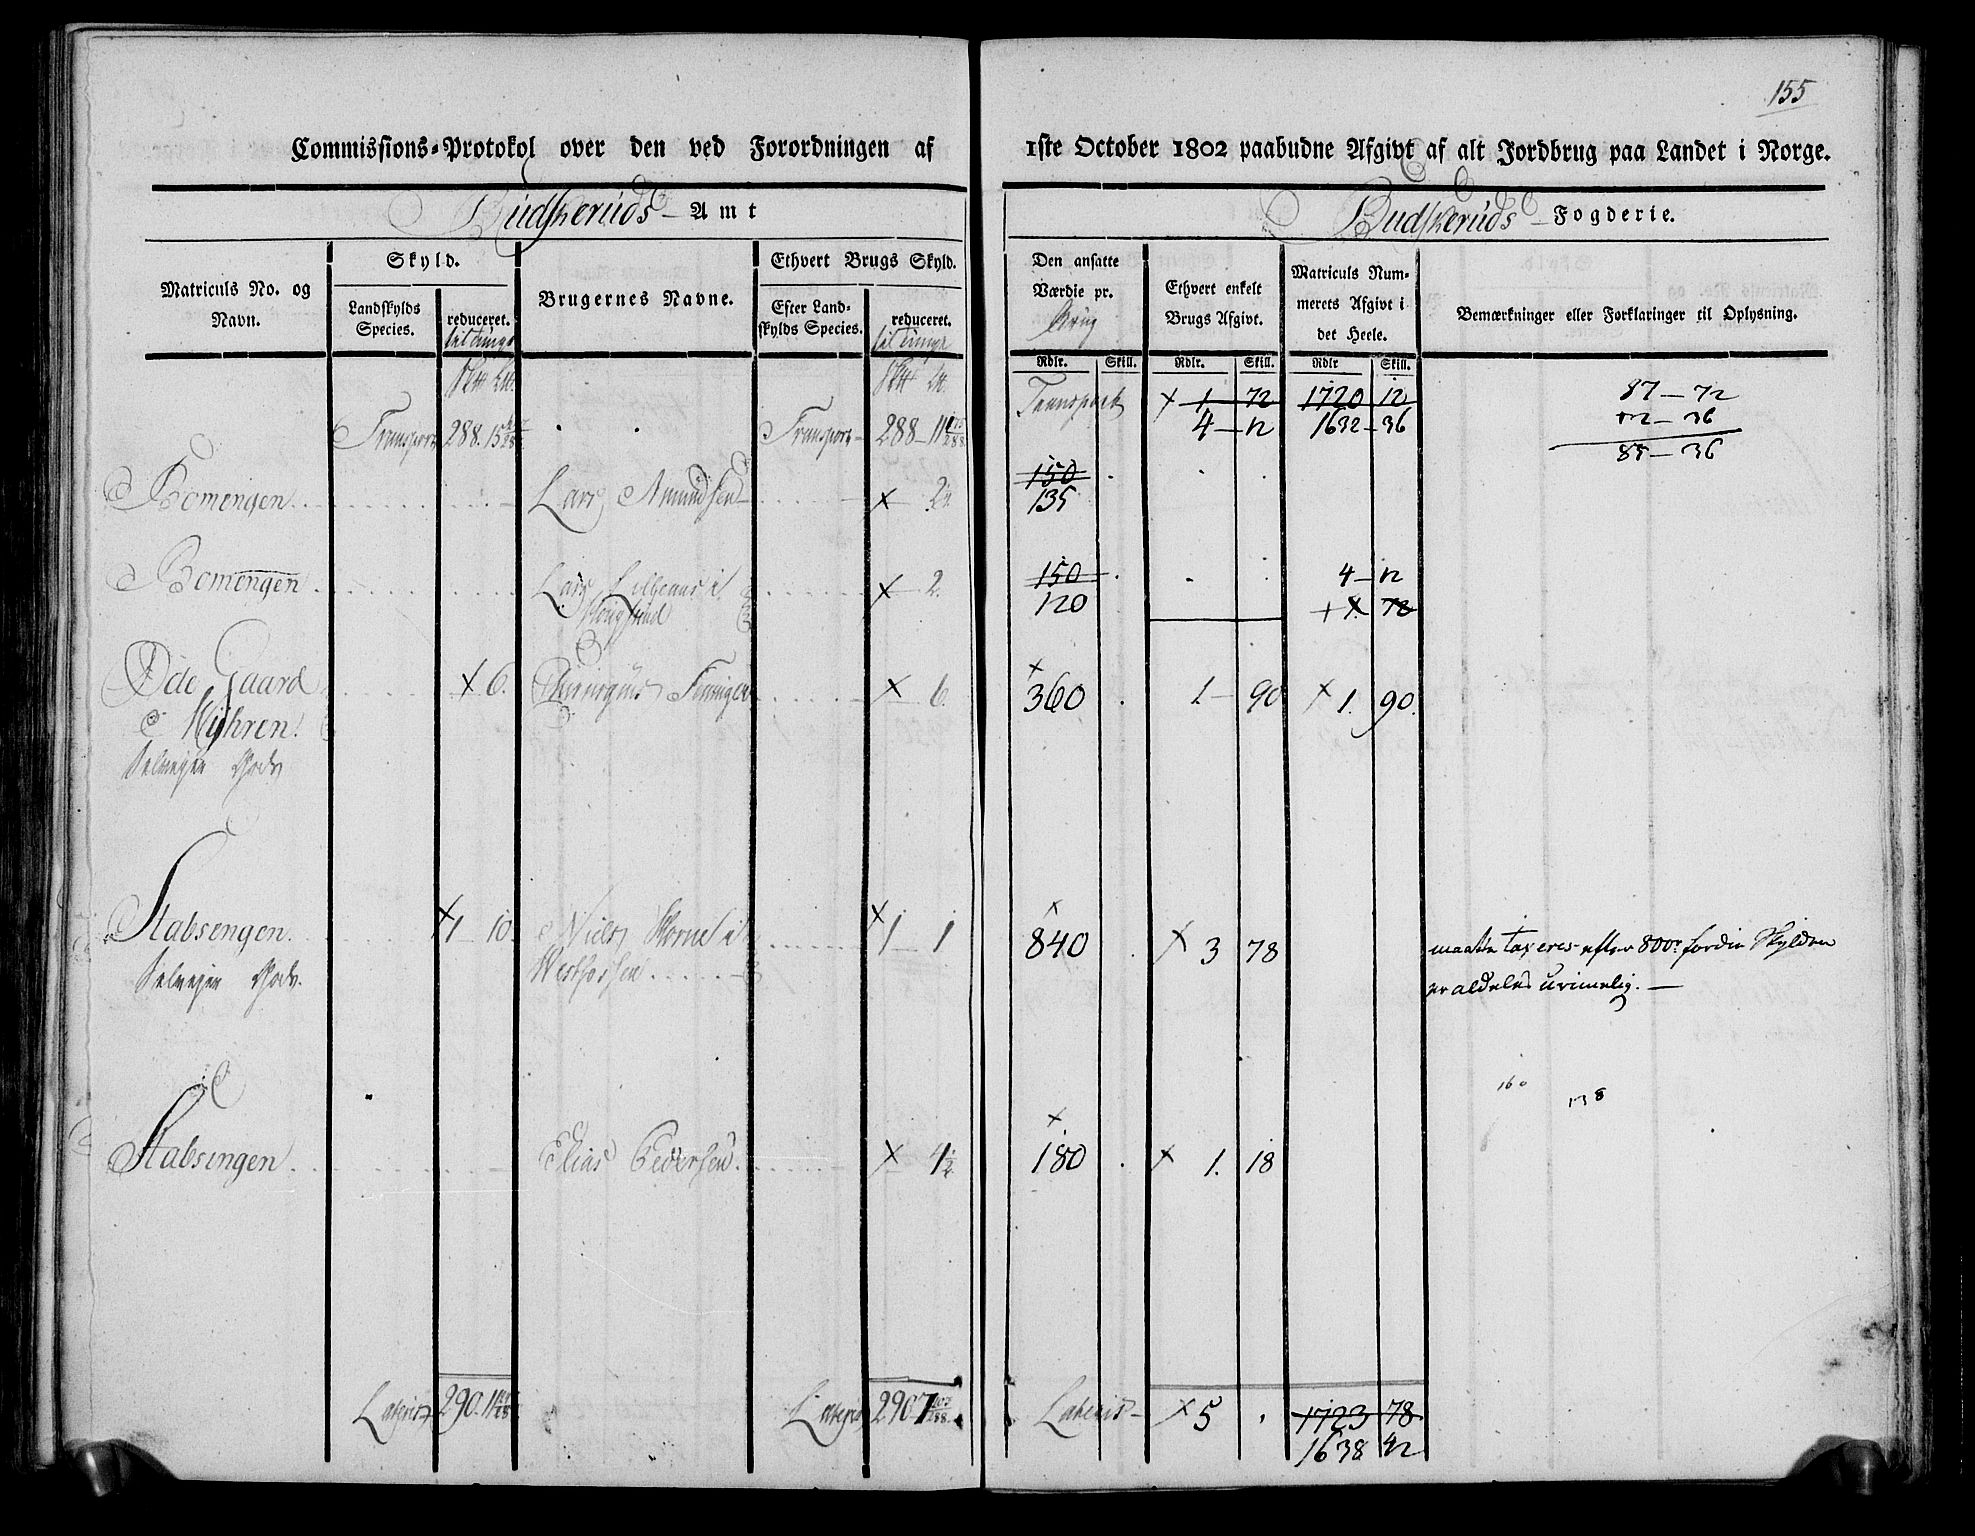 155
Commissions-Protokol over den ved Forordningen af 1ste October 1802 paabudne Afgivt af alt Jordbrug paa Landet i Norge.
Budskeruds Amt
Budskeruds Fogderie.
Matriculs No. og Navn.
Skyld.
Landskylds Species.
reduceret.
Brugernes Navne.
Ethvert Brugs Skyld.
Efter Landskylds Species.
reduceret.
Den ansatte Værdie pr. Brug
Ethvert enkelt Brugs Afgivt.
Matriculs Nummerets Afgivt i det Heele.
Bemærkninger eller Forklaringer til Oplysning.
Rdlr. Skill. Rdlr. Skill. Rdlr Skill.
Transport 288. 15 Transport 288 – 11 Transport × 1. 72 1720 12 87 – 72
4 – 12 1632 – 36 – 36
85 – 36
Bomengen Lars Amundsen × 2 150
135
Bomengen Lars i × 2. 150 4 – 12
120 + 1. 72
Öde Gaard × 6. × 6. × 360 1 – 90 × 1. 90.
Myhren
Selveyer Gods
Stabsengen. × 1 – 10 Niels Korne i × 1 – 1 × 840 × 3 78 maatte taxeres efter 800 r fordie Skylden
Selveyer Gods. Westfossen er aldeles urimelig. —
160
138
Stabsengen Elias Pedersen. × 4 1/2 × 180 × 1. 18
Lateris 290. 11 Lateris 290 7 Lateris × 5 1723 78
1638 42